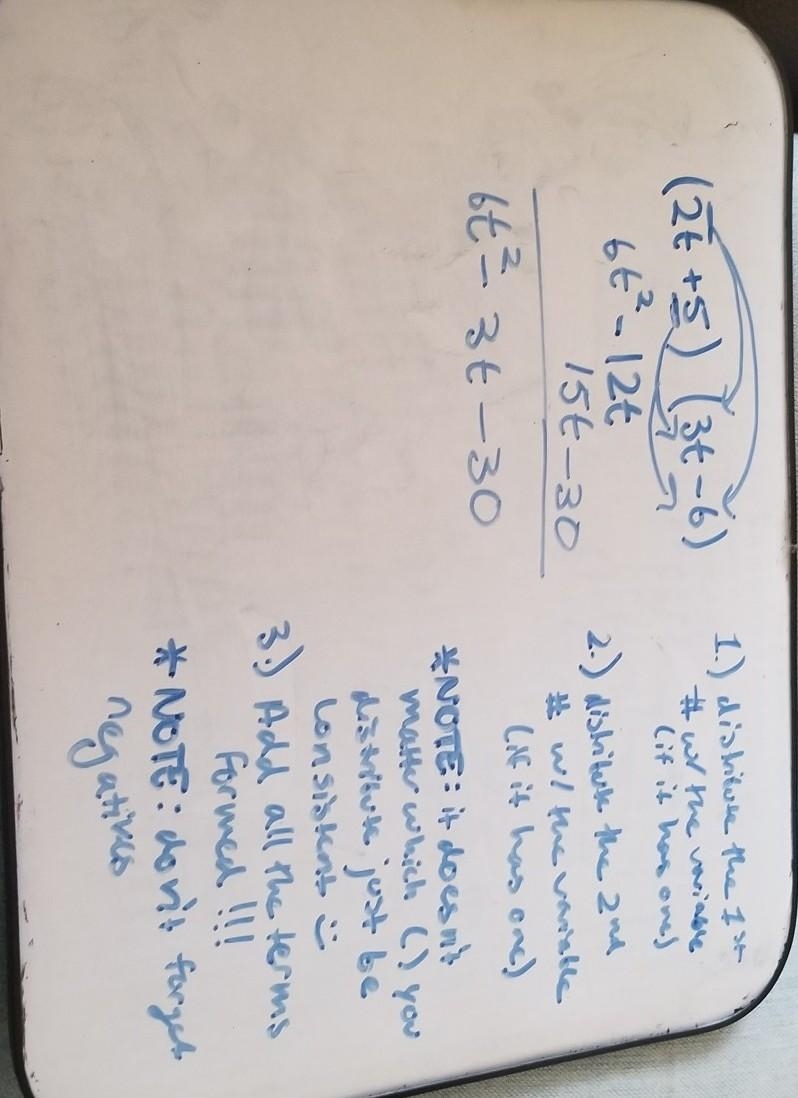 (2t + 5) (3t - 6)
6t² - 12t
15t - 30
6t² - 3t - 30
1.) distribute the 1st
# w/ the variable
(if it has one)
2.) distribute the 2nd
# w/ the variable
(if it has one)
*NOTE: it doesn't
matter which ( ) you
distribute just be
consistent :)
3.) Add all the terms
formed !!!
* NOTE: don't forget
negatives